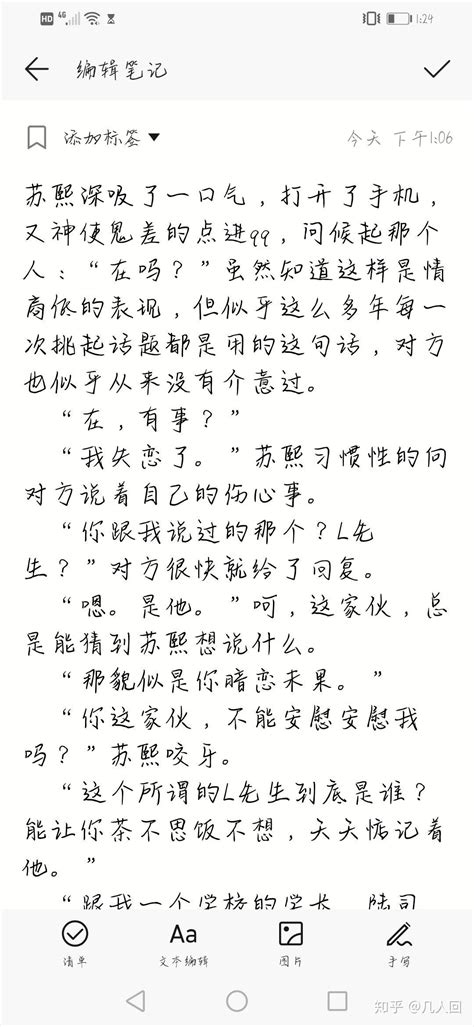 HD 4G 1:24
编辑笔记
添加标签 今天 下午1:06
苏熙深吸了一口气，打开了手机，
又神使鬼差的点进qq，问候起那个
人：“在吗？”虽然知道这样是情
商低的表现，但似乎这么多年每一
次挑起话题都是用的这句话，对方
也似乎从来没有介意过。
“在，有事？”
“我失恋了。”苏熙习惯性的向
对方说着自己的伤心事。
“你跟我说过的那个？L先
生？”对方很快就给了回复。
“嗯。是他。”呵，这家伙，总
是能猜到苏熙想说什么。
“那貌似是你暗恋未果。”
“你这家伙，不能安慰安慰我
吗？”苏熙咬牙。
“这个所谓的L先生到底是谁？
能让你茶不思饭不想，天天惦记着
他。”
“跟我一个学校的学长，陆司
清单 文本编辑 图片 手写
知乎 @几人回